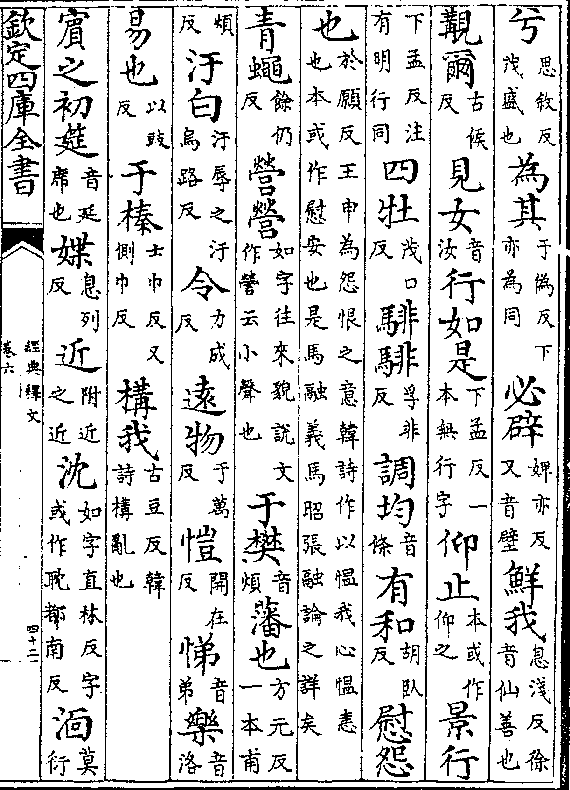 兮思敘反茂盛也為其于偽反下亦為同必辟婢亦反又音璧鮮我息淺反徐音仙善也
覯爾古候反見女音汝行如是下孟反一本無行字仰止本或作仰之景行
下孟反注有明行同四牡茂口反騑騑孚非反調均音條有和胡臥反慰怨
於願反王申為怨恨之意韓詩作以慍我心慍恚也本或作慰安也是馬融義馬昭張融論之詳矣
青蠅餘仍反營營如字往來貌說文作䇦云小聲也于樊音煩藩也方元反一本甫
煩反汙白汙辱之汙烏路反令力成反遠物于萬反愷開在反悌音弟樂音洛
易也以豉反于榛士巾反又側巾反構我古豆反韓詩構亂也
賓之初筵音延席也媟息列反近附近之近沈如字直林反字或作耽都南反湎莫衍
欽定四庫全書
經典釋文
卷六
四十二